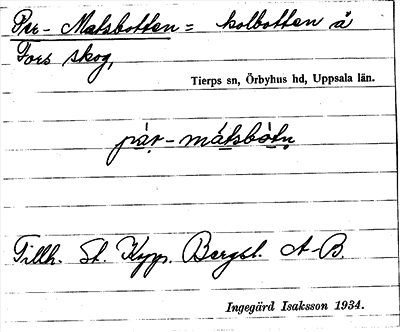 Per-Matsbotten = kolbotten å
Fors skog,
Tierps sn, Örbyhus hd, Uppsala län.
pàr-mátsbòtn
Tillh. St. Kopp. Bergsl. A-B.
Ingegärd Isaksson 1934.